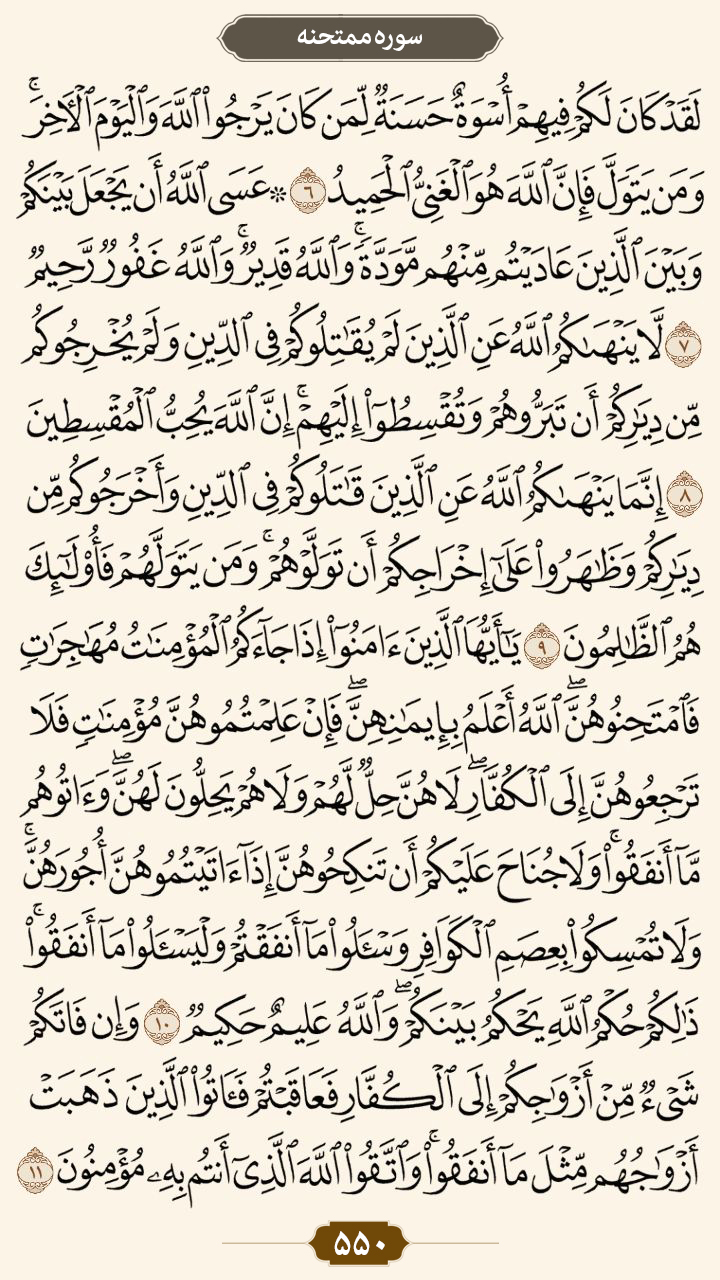 سوره ممتحنه
لَقَدْ كَانَ لَكُمْ فِيهِمْ أُسْوَةٌ حَسَنَةٌ لِّمَن كَانَ يَرْجُوا۟ ٱللَّهَ وَٱلْيَوْمَ ٱلْـَٔاخِرَ ۚ
وَمَن يَتَوَلَّ فَإِنَّ ٱللَّهَ هُوَ ٱلْغَنِىُّ ٱلْحَمِيدُ ٦ ۞ عَسَى ٱللَّهُ أَن يَجْعَلَ بَيْنَكُمْ
وَبَيْنَ ٱلَّذِينَ عَادَيْتُم مِّنْهُم مَّوَدَّةً ۚ وَٱللَّهُ قَدِيرٌ ۚ وَٱللَّهُ غَفُورٌ رَّحِيمٌ
٧ لَّا يَنْهَىٰكُمُ ٱللَّهُ عَنِ ٱلَّذِينَ لَمْ يُقَـٰتِلُوكُمْ فِى ٱلدِّينِ وَلَمْ يُخْرِجُوكُم
مِّن دِيَـٰرِكُمْ أَن تَبَرُّوهُمْ وَتُقْسِطُوٓا۟ إِلَيْهِمْ ۚ إِنَّ ٱللَّهَ يُحِبُّ ٱلْمُقْسِطِينَ
٨ إِنَّمَا يَنْهَىٰكُمُ ٱللَّهُ عَنِ ٱلَّذِينَ قَـٰتَلُوكُمْ فِى ٱلدِّينِ وَأَخْرَجُوكُم مِّن
دِيَـٰرِكُمْ وَظَـٰهَرُوا۟ عَلَىٰٓ إِخْرَاجِكُمْ أَن تَوَلَّوْهُمْ ۚ وَمَن يَتَوَلَّهُمْ فَأُو۟لَـٰٓئِكَ
هُمُ ٱلظَّـٰلِمُونَ ٩ يَـٰٓأَيُّهَا ٱلَّذِينَ ءَامَنُوٓا۟ إِذَا جَآءَكُمُ ٱلْمُؤْمِنَـٰتُ مُهَـٰجِرَٰتٍ
فَٱمْتَحِنُوهُنَّ ۖ ٱللَّهُ أَعْلَمُ بِإِيمَـٰنِهِنَّ ۖ فَإِنْ عَلِمْتُمُوهُنَّ مُؤْمِنَـٰتٍ فَلَا
تَرْجِعُوهُنَّ إِلَى ٱلْكُفَّارِ ۖ لَا هُنَّ حِلٌّ لَّهُمْ وَلَا هُمْ يَحِلُّونَ لَهُنَّ ۖ وَءَاتُوهُم
مَّآ أَنفَقُوا۟ ۚ وَلَا جُنَاحَ عَلَيْكُمْ أَن تَنكِحُوهُنَّ إِذَآ ءَاتَيْتُمُوهُنَّ أُجُورَهُنَّ ۚ
وَلَا تُمْسِكُوا۟ بِعِصَمِ ٱلْكَوَافِرِ وَسْـَٔلُوا۟ مَآ أَنفَقْتُمْ وَلْيَسْـَٔلُوا۟ مَآ أَنفَقُوا۟ ۚ
ذَٰلِكُمْ حُكْمُ ٱللَّهِ يَحْكُمُ بَيْنَكُمْ ۖ وَٱللَّهُ عَلِيمٌ حَكِيمٌ ١٠ وَإِن فَاتَكُمْ
شَىْءٌ مِّنْ أَزْوَٰجِكُمْ إِلَى ٱلْكُفَّارِ فَعَاقَبْتُمْ فَـَٔاتُوا۟ ٱلَّذِينَ ذَهَبَتْ
أَزْوَٰجُهُم مِّثْلَ مَآ أَنفَقُوا۟ ۚ وَٱتَّقُوا۟ ٱللَّهَ ٱلَّذِىٓ أَنتُم بِهِۦ مُؤْمِنُونَ ١١
۵۵۰